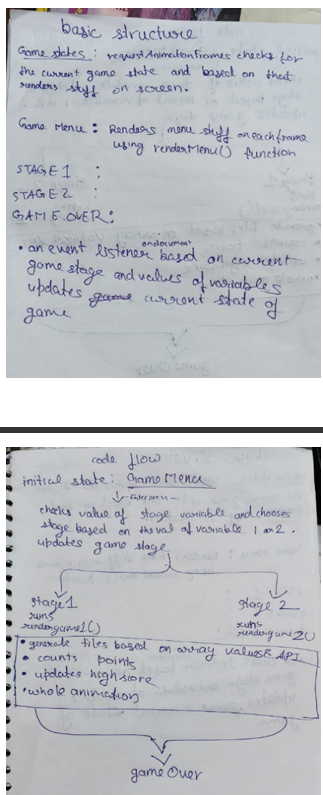 basic structure
Game states : requestAnimationFrames checks for
the current game state and based on that
renders stuff on screen.
Game Menu : Renders menu stuff on each frame
using renderMenu() function
STAGE 1 :
STAGE 2 :
GAME OVER :
• an event listener on document based on current
game stage and values of variables
updates game current state of
game
code flow
initial state: GameMenu
Enter press
checks value of stage variable and chooses
stage based on the val of variable 1 or 2.
updates game stage
stage 1
stage 2
runs
runs
rendergame1()
rendergame2()
• generate tiles based on array values & API
• counts points
• updates highscore
• whole animation
gameOver